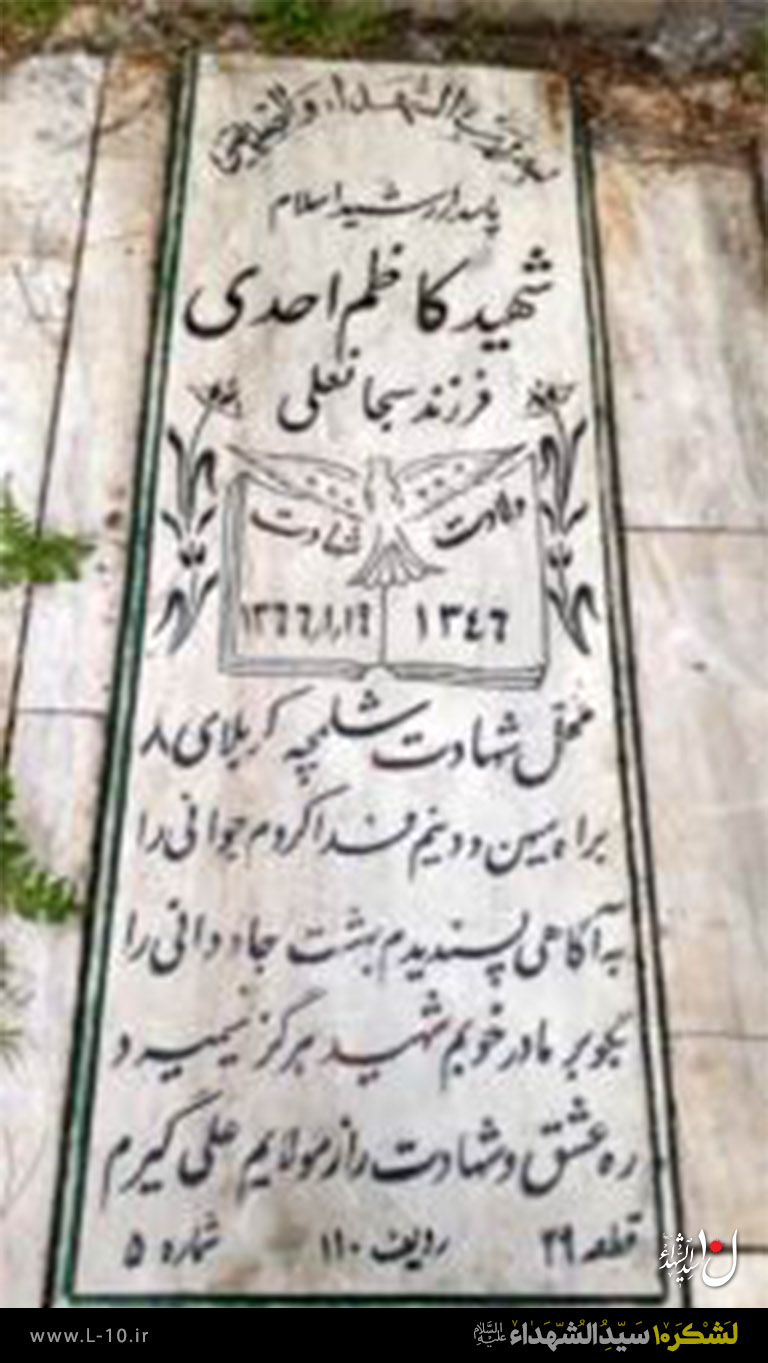 بسم رب الشهداء والصدیقین
پاسدار رشید اسلام
شهید کاظم احدی
فرزند سبحانعلی
ولادت
شهادت
۱۳۴۶
۱۳۶۶,۱,۱۹
محل شهادت شلمچه کربلای ۸
براه میهن و دینم فدا کردم جوانی را
به آگاهی پسندیدم بهشت جاودانی را
بگو بر مادر خوبم شهید هرگز نمیمیرد
ره عشق و شهادت را از مولایم علی گیرم
قطعه ۲۹ ردیف ۱۱۰ شماره ۵
لشکر۱۰ سیدالشهداء علیه السلام
www.L-10.ir